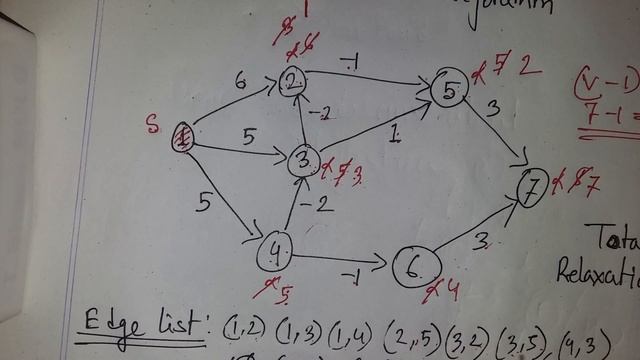 1
8
∝ 6
-1
2
5
∝ 5 2
(V-1)
6
S
1
5
-2
3
1
3
∝ 5 3
7
∝ 8 7
7-1=
5
-2
4
-1
6
3
∝ 5
∝ 4
Total
Relaxatio
Edge list: (1,2) (1,3) (1,4) (2,5) (3,2) (3,5), (4,3)